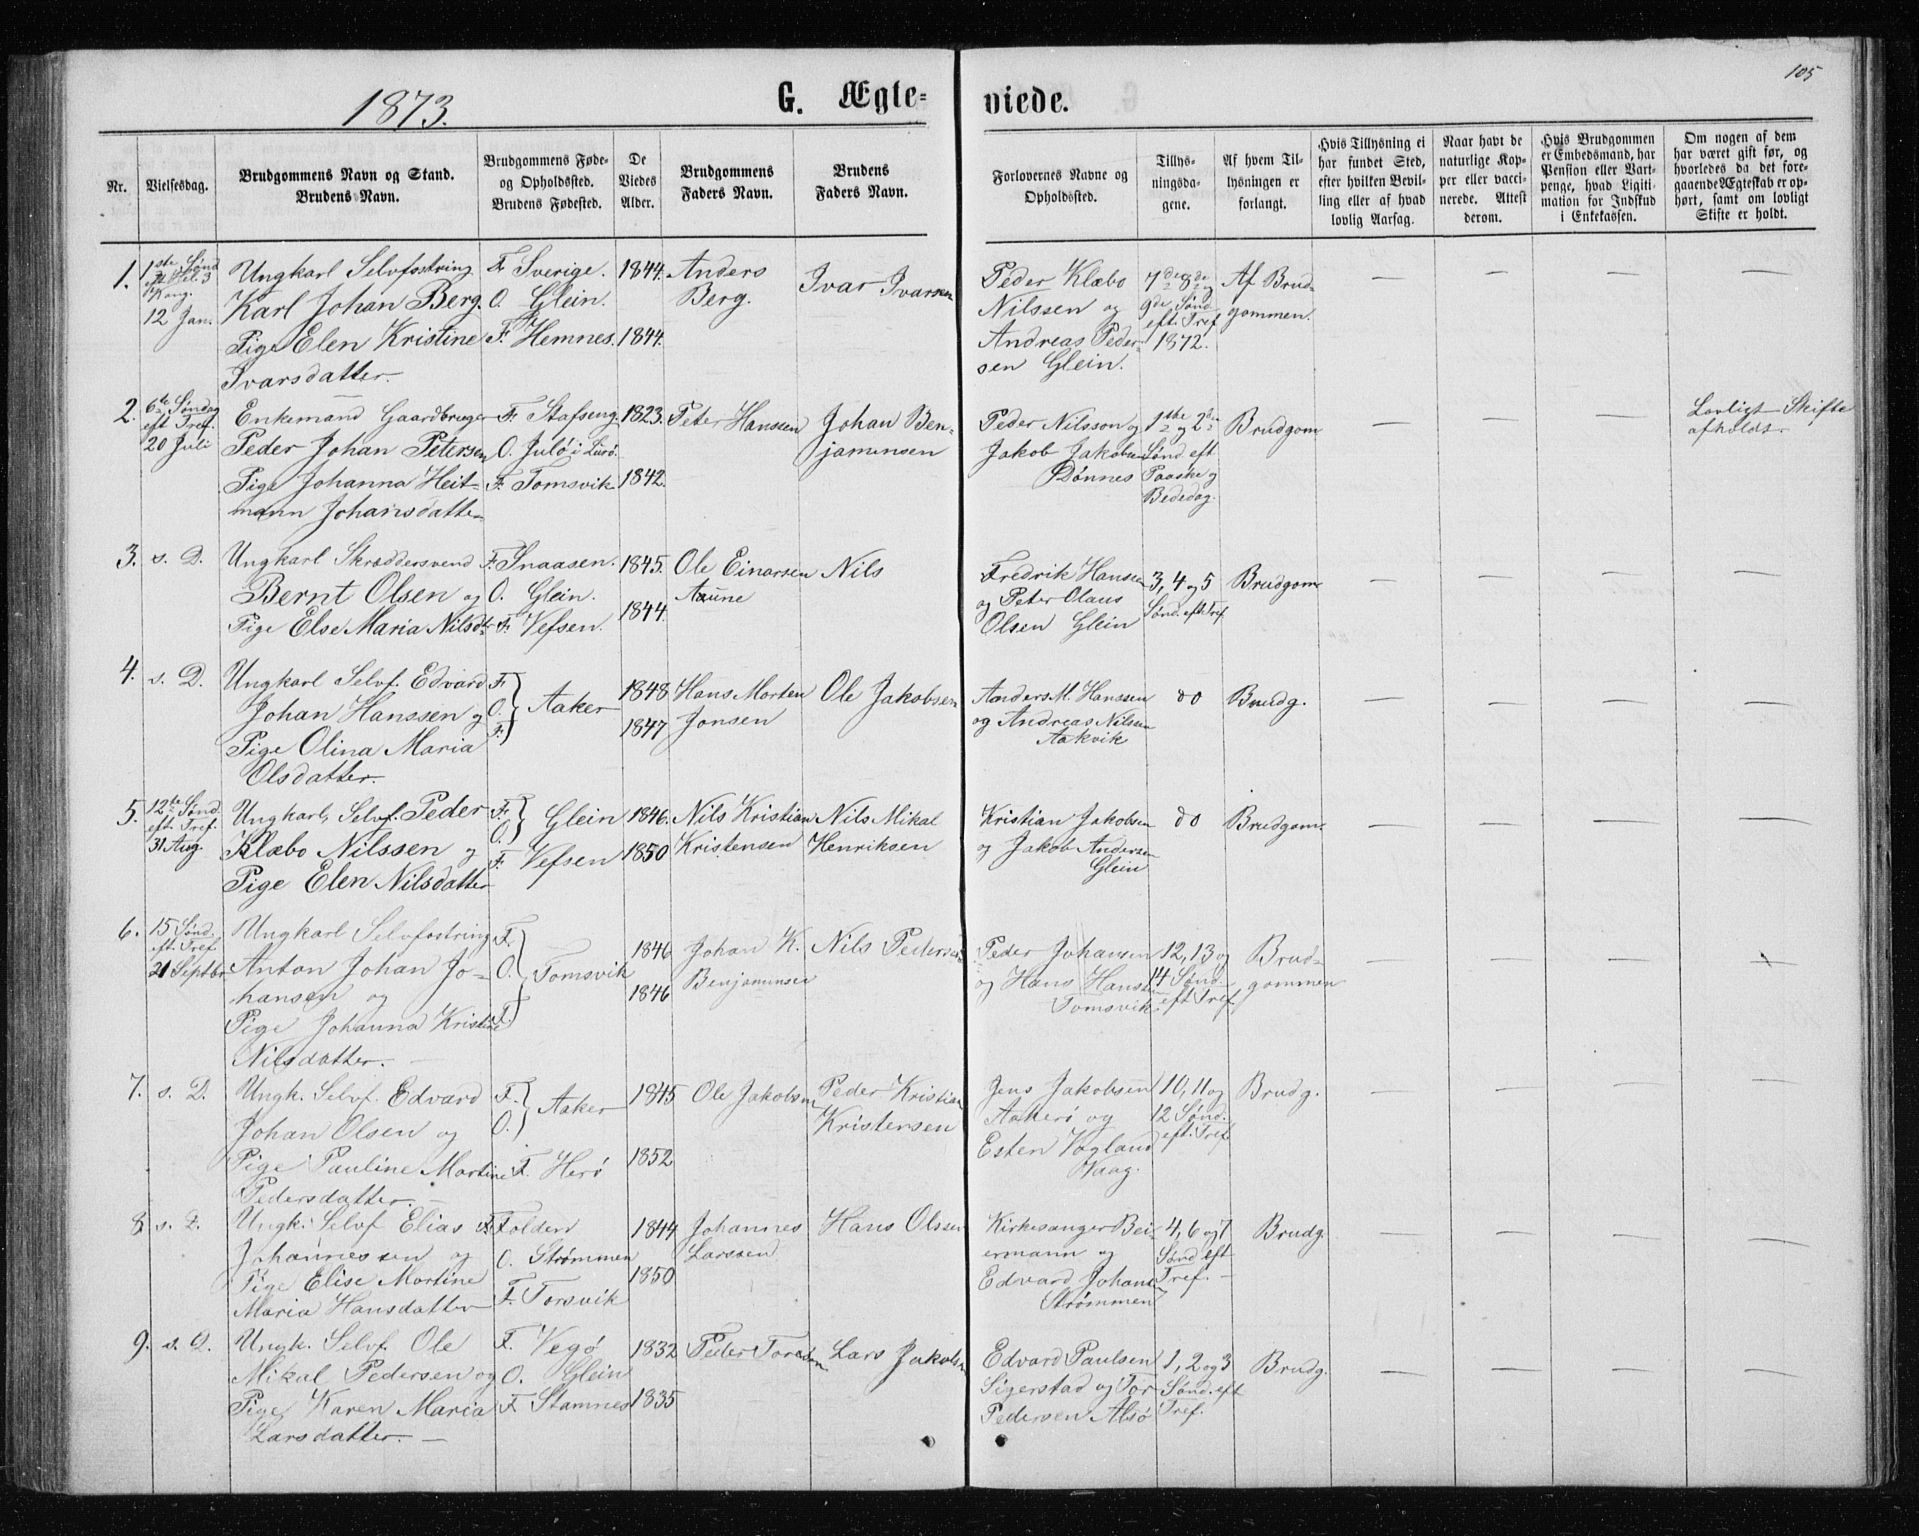 105
1873.
G. Ægte=
viede.
Nr.
Vielsesdag.
Brudgommens Navn og Stand.
Brudens Navn.
Brudgommens Føde-
og Opholdssted.
Brudens Fødested.
De
Viedes
Alder.
Brudgommens
Faders Navn.
Brudens
Faders Navn.
Forlovernes Navne og
Opholdssted.
Tillys-
ningsda-
gene.
Af hvem Til-
lysningen er
forlangt.
Hvis Tillysning ei
har fundet Sted,
efter hvilken Bevil-
ling eller af hvad
lovlig Aarsag.
Naar havt de
naturlige Kop-
per eller vacci-
nerede. Attest
derom.
Hvis Brudgommen
er Embedsmand, har
Pension eller Vart-
penge, hvad Legiti-
mation for Indskud
i Enkekassen.
Om nogen af dem
har været gift før, og
hvorledes da det fore-
gaaende Ægteskab er op-
hørt, samt om lovligt
Skifte er holdt.
1.
1ste Sønd
eft. Hel. 3
Kong.
12 Jan.
Ungkarl Selvfostring
Karl Johan Berg.
Pige Elen Kristine
Ivarsdatter.
F. Sverige.
O. Glein.
F. Hemnes.
1844.
1844.
Anders
Berg.
Ivar Ivarsen
Peder Klæbo
Nilssen og
Andreas Peder-
sen Glein.
7de 8de og
9de Sønd
eft. Tref
1872.
Af Brud-
gommen.
2.
6te Søndag
eft Tref.
20 Juli
Enkemand Gaardbruger
Peder Johan Petersen
Pige Johanna Heit-
mann Johansdatter
F. Stafseng
O. Julø i Lurø.
F. Tomsvik
1823.
1842.
Peter Hanssen
Johan Ben-
jaminsen
Peder Nilsson og
Jakob Jakobsen
Dønnes
1ste og 2de
Sønd eft
Paaske og
Bededag.
Brudgom
Lovligt Skifte
afholdt.
3.
s. D.
Ungkarl Skræddersvend
Bernt Olsen og
Pige Else Maria Nilsdr
F. Snaasen.
O. Glein.
F. Vefsen.
1845.
1844.
Ole Einarsen
Aune
Nils
Fredrik Hansen
og Peter Olaus
Olsen Glein
3, 4 og 5
Sønd. eft Tref
Brudgom
4.
s. D.
Ungkarl Selvf. Edvard
Johan Hanssen og
Pige Olina Maria
Olsdatter.
F.
O. Aaker
F.
1848
1847
Hans Morten
Jonsen
Ole Jakobsen
Anders M. Hanssen
og Andreas Nilsen
Aakvik
do
Brudg.
5.
12te Sønd.
eft. Tref.
31 Aug.
Ungkarl, Selvf. Peder
Klæbo Nilssen og
Pige Elen Nilsdatter
F.
O. Glein
F. Vefsen
1846.
1850
Nils Kristian
Kristensen
Nils Mikal
Henriksen
Kristian Jakobsen
og Jakob Andersen
Glein
do
Brudgom.
6.
15 Sønd.
eft. Tref
21 Septbr
Ungkarl Selvfostring
Anton Johan Jo-
hansen og
Pige Johanna Kristine
Nilsdatter.
F.
O. Tomsvik
F.
1846
1846
Johan K.
Benjaminsen
Nils Pedersen
Peder Johansen
og Hans Hansen
Tomsvik
12, 13 og
14 Sønd.
eft Tref.
Brud-
gommen
7.
s. D.
Ungk. Selvf. Edvard
Johan Olsen og
Pige Pauline Martine
Pedersdatter.
F.
O. Aaker
F. Herø
1845
1852
Ole Jakobsen
Peder Kristian
Kristensen
Jens Jakobsen
Aakerø og
Esten Vogland
Vaag.
10, 11 og
12 Sønd.
eft. Tref
Brudg.
8
s. D.
Ungk. Selvf Elias
Johannessen og
Pige Elise Martine
Maria Hansdatter
F. Folden
O. Strømmen
F. Torsvik
1844
1850
Johannes
Larssen
Hans Olssen
Kirkesanger Bei-
ermann og
Edvard Johans
Strømmen
4, 6 og 7
Sønd eft
Tref.
Brudg.
9.
s. D.
Ungk. Selvf. Ole
Mikal Pedersen og
Pige Karen Maria
Larsdatter.
F. Vegø
O. Glein
F. Stamnes
1832
1835
Peder Toresen
Lars Jakobsen
Edvard Paulsen
Sigerstad og Tor
Pedersen Alsø
1, 2 og 3
Sønd. eft
Tref.
Brudg.